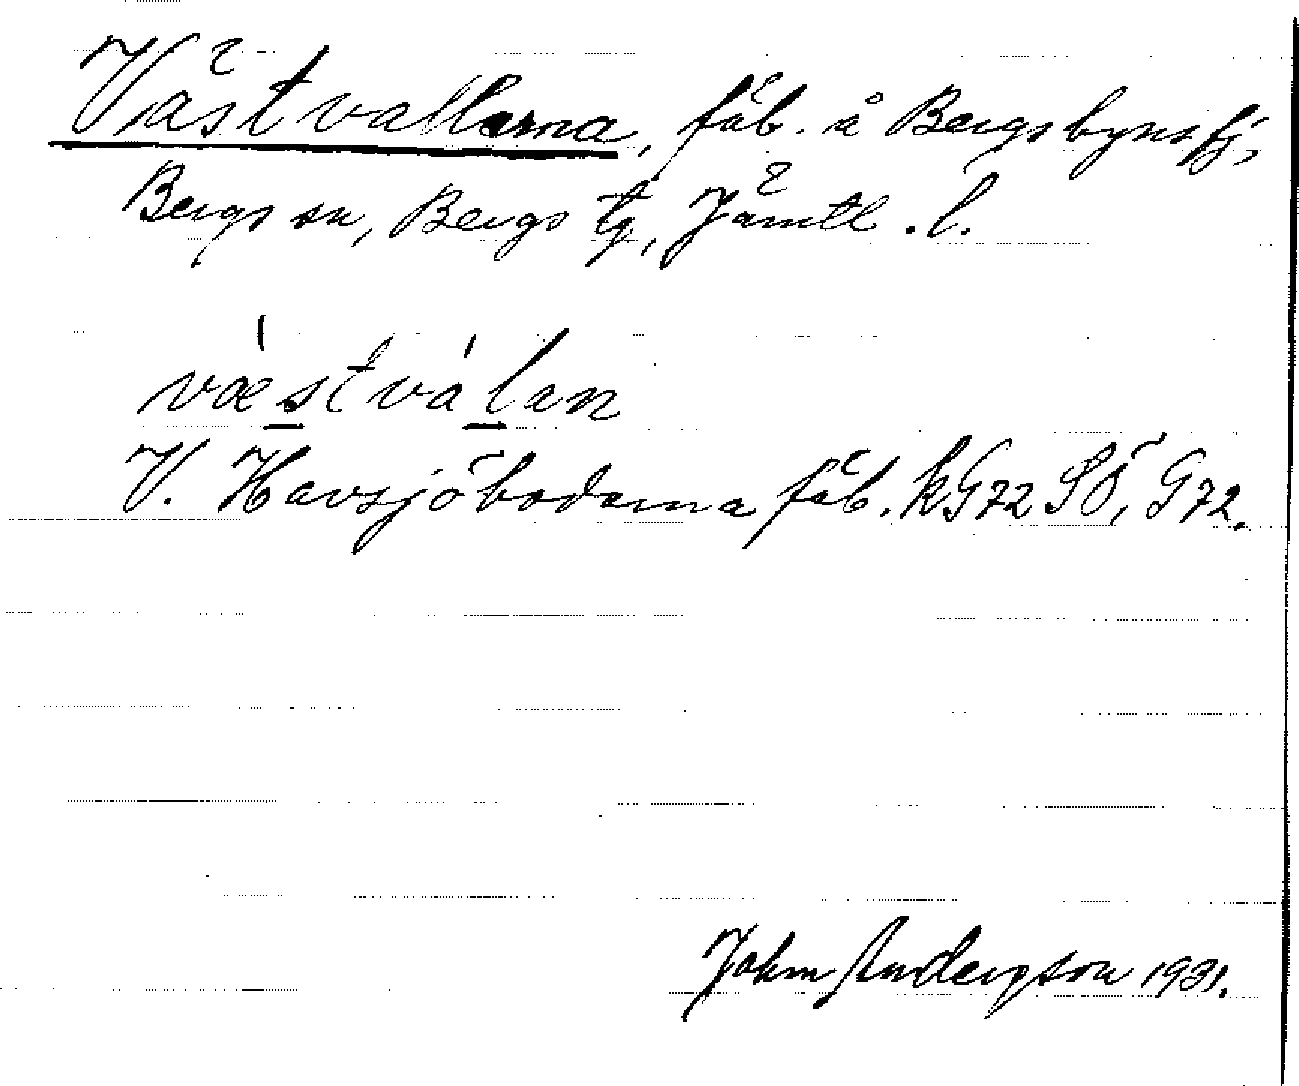 Västvallarna, fäb. å Bergsbynsfj,
Bergs sn, Bergs tg, Jämtl. l.
væstválan
V. Havsjöbodarna fäb. kG72 SÖ, G72.
John Anderson 1931.